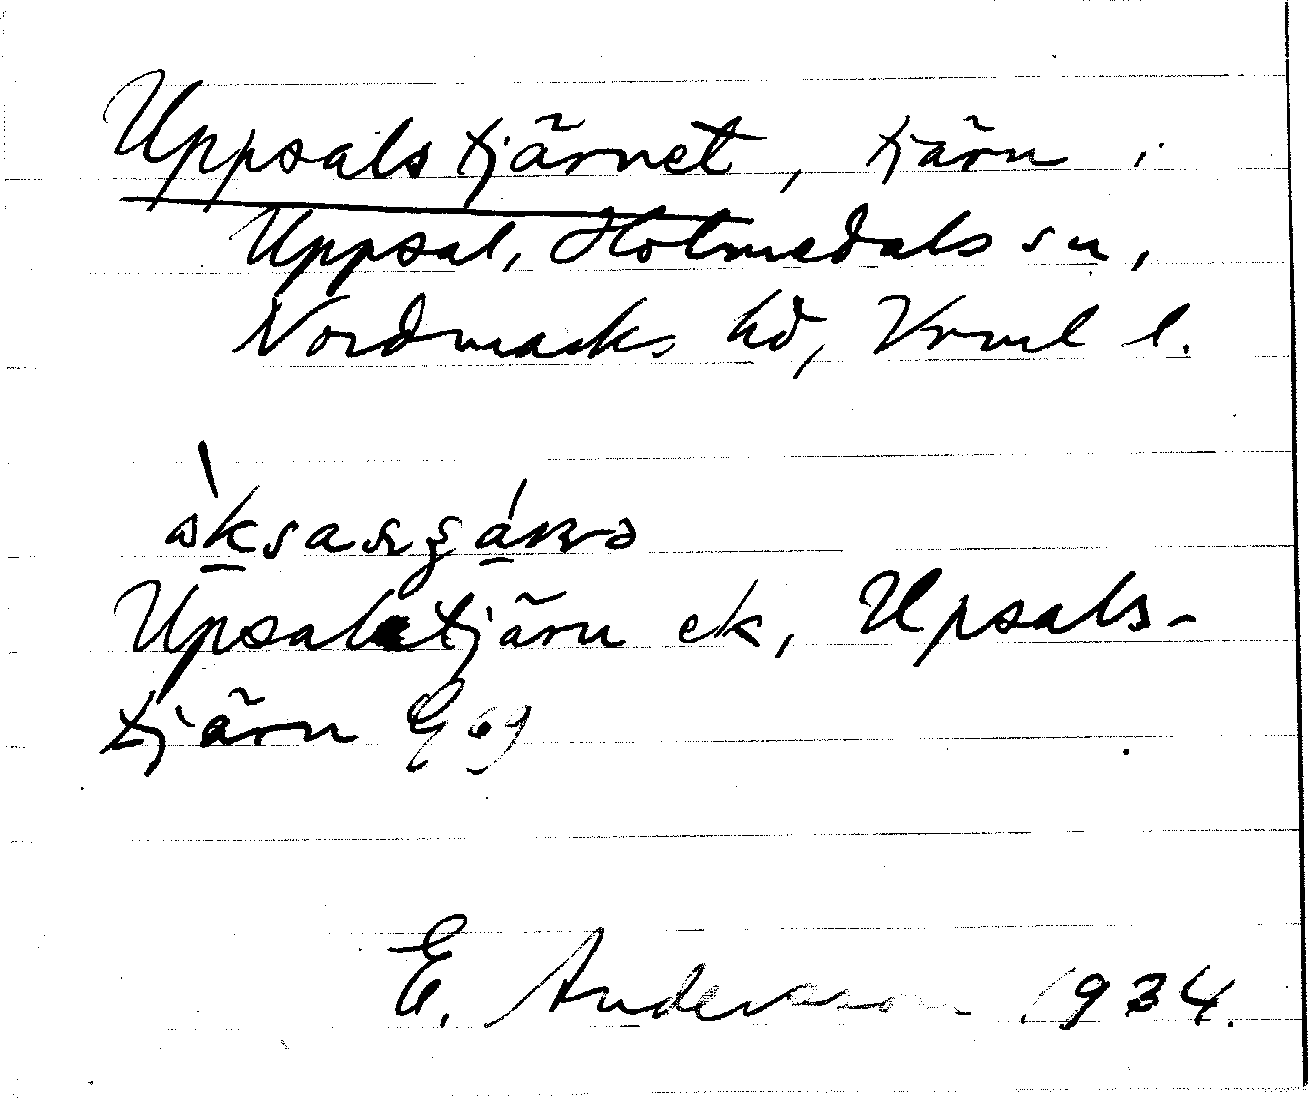 Uppsalstjärnet, tjärn i
Uppsal, Holmedals sn,
Nordmarks hd, Vrml l.
Upsaltjärn ek, Upsals-
tjärn
E. Andersson 1934.